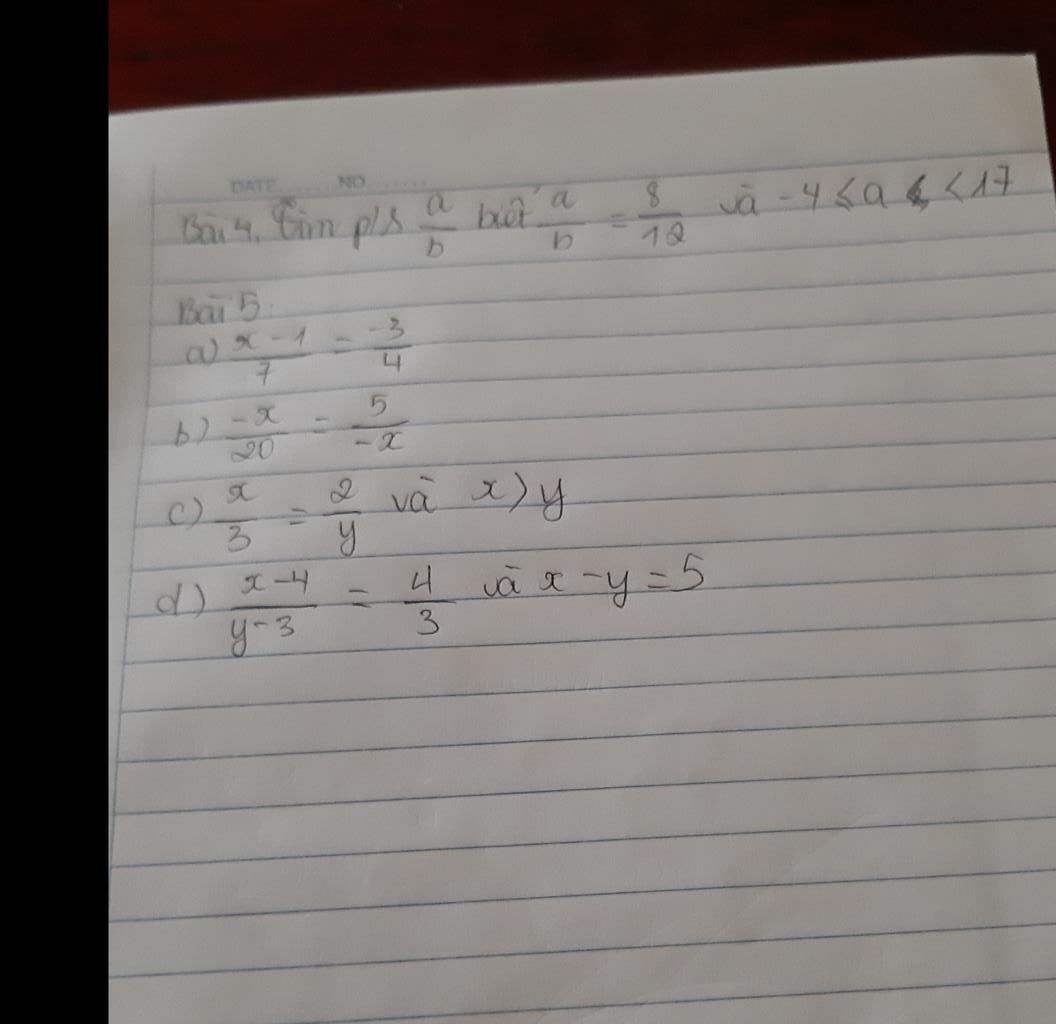 DATE NO
Bài 4. Tìm p/s a/b biết a/b = 8/12 và -4 ≤ a < < 17
Bài 5:
a) x - 1/7 = -3/4
b) -x/20 = 5/-x
c) x/3 = 2/y và x > y
d) x-4/y-3 = 4/3 và x - y = 5